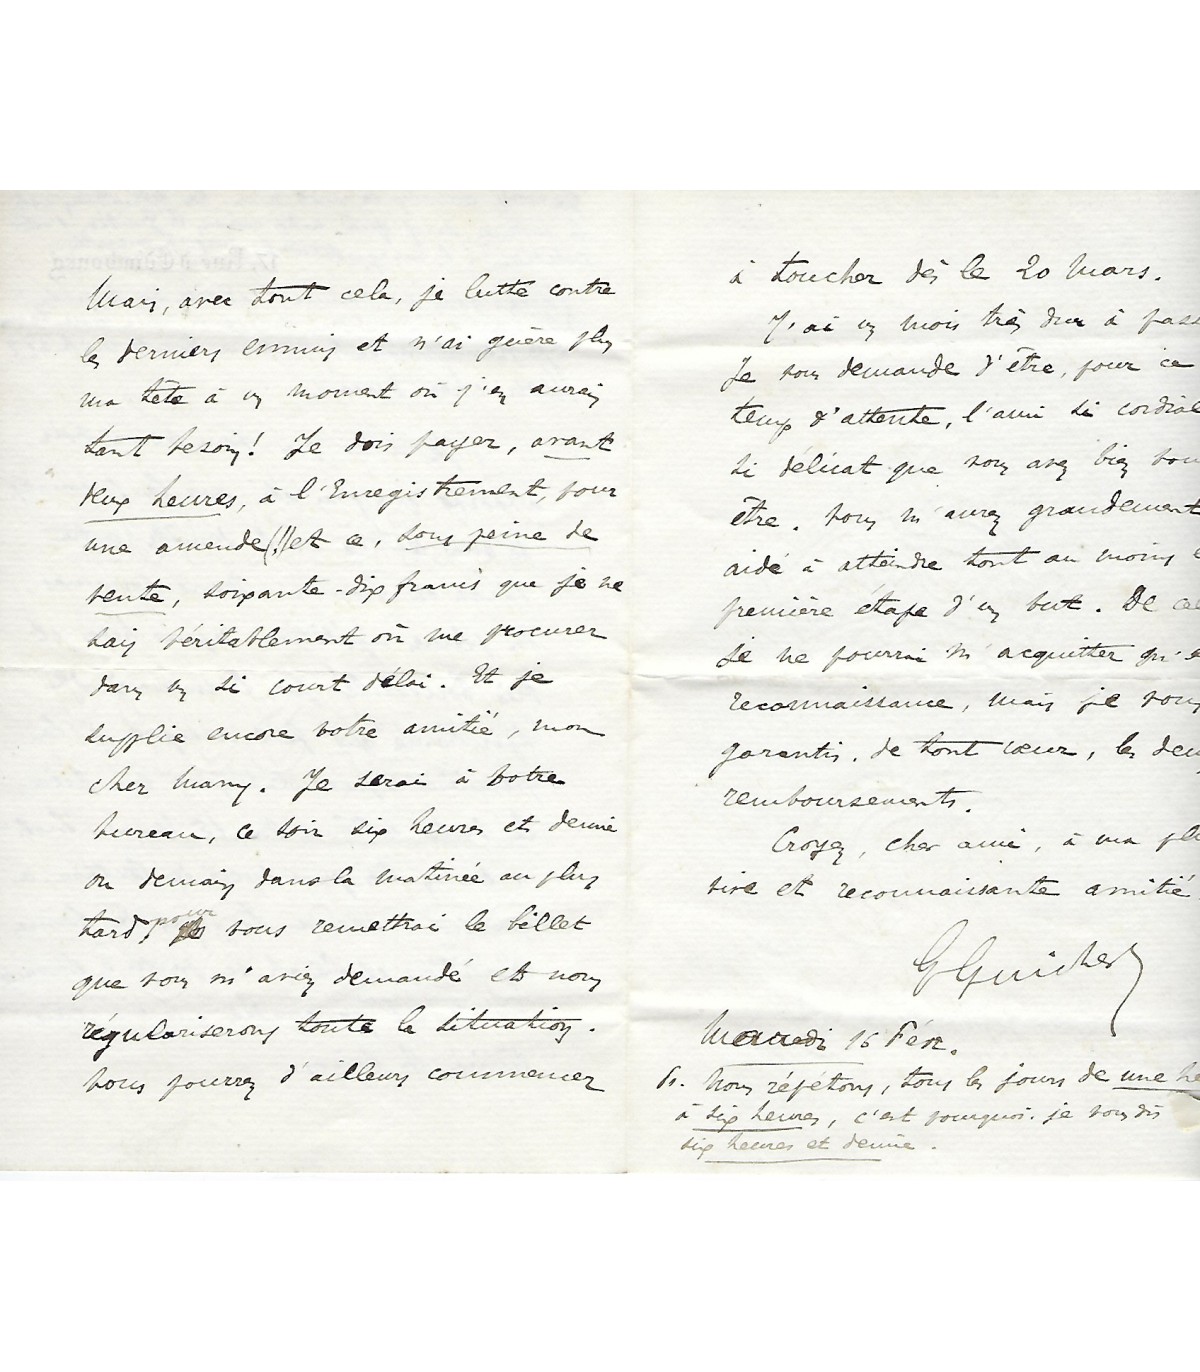 Mais, avec tout cela, je lutte contre
les derniers ennuis et n'ai guère plus
ma tête à un moment où j'en aurais
tant besoin! Je dois payer, avant
deux heures, à l'Enregistrement, pour
une amende (!!) et ce, sous peine de
vente, soixante-dix francs que je ne
sais véritablement où me procurer
dans un si court délai. Et je
supplie encore votre amitié, mon
cher Many. Je serai à votre
bureau, ce soir six heures et demie
ou demain dans la matinée au plus
tard, pour vous remettrai le billet
que vous m'aviez demandé et nous
régulariserons toute la situation.
Vous pourrez d'ailleurs commencer
à toucher dès le 20 Mars.
J'ai un mois très dur à pass
Je vous demande d'être, pour ce
temps d'attente, l'ami si cordial
si délicat que vous avez bien vou
être. Vous m'aurez grandement
aidé à atteindre tout au moins
première étape d'un but. De cel
je ne pourrai m'acquitter qu'e
reconnaissance, mais je vous
garantis, de tout cœur, les deu
remboursements.
Croyez, cher ami, à ma plu
vive et reconnaissante amitié
G Guiches
Mercredi 16 Févr.
Ps. Nous répétons, tous les jours de une he
à six heures, c'est pourquoi je vous dis
six heures et demie.